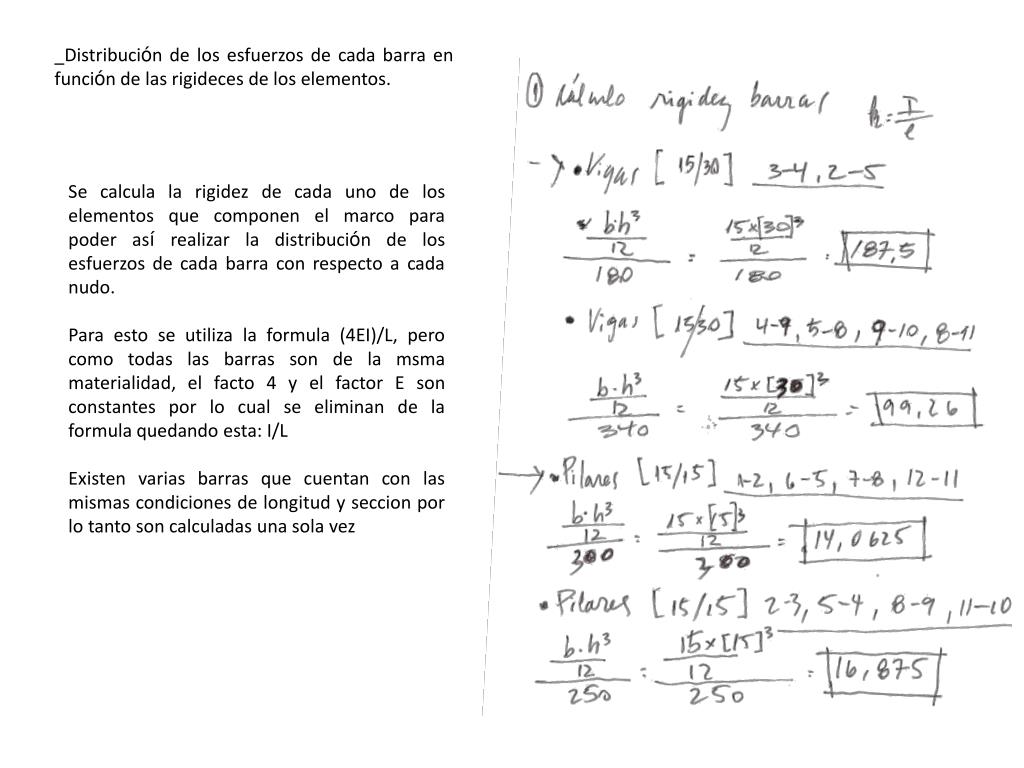 _Distribución de los esfuerzos de cada barra en
función de las rigideces de los elementos.
Se calcula la rigidez de cada uno de los
elementos que componen el marco para
poder así realizar la distribución de los
esfuerzos de cada barra con respecto a cada
nudo.
Para esto se utiliza la formula (4EI)/L, pero
como todas las barras son de la msma
materialidad, el facto 4 y el factor E son
constantes por lo cual se eliminan de la
formula quedando esta: I/L
Existen varias barras que cuentan con las
mismas condiciones de longitud y seccion por
lo tanto son calculadas una sola vez
① Cálculo rigidez barras k = I/l
→ • Vigas [15/30] 3-4, 2-5
b·h³/12 / 180 = 15x[30]³/12 / 180 = 187,5
• Vigas [15/30] 4-9, 5-8, 9-10, 8-11
b·h³/12 / 340 = 15x[30]³/12 / 340 = 99,26
→ • Pilares [15/15] 1-2, 6-5, 7-8, 12-11
b·h³/12 / 300 = 15x[15]³/12 / 300 = 14,0625
• Pilares [15/15] 2-3, 5-4, 8-9, 11-10
b·h³/12 / 250 = 15x[15]³/12 / 250 = 16,875